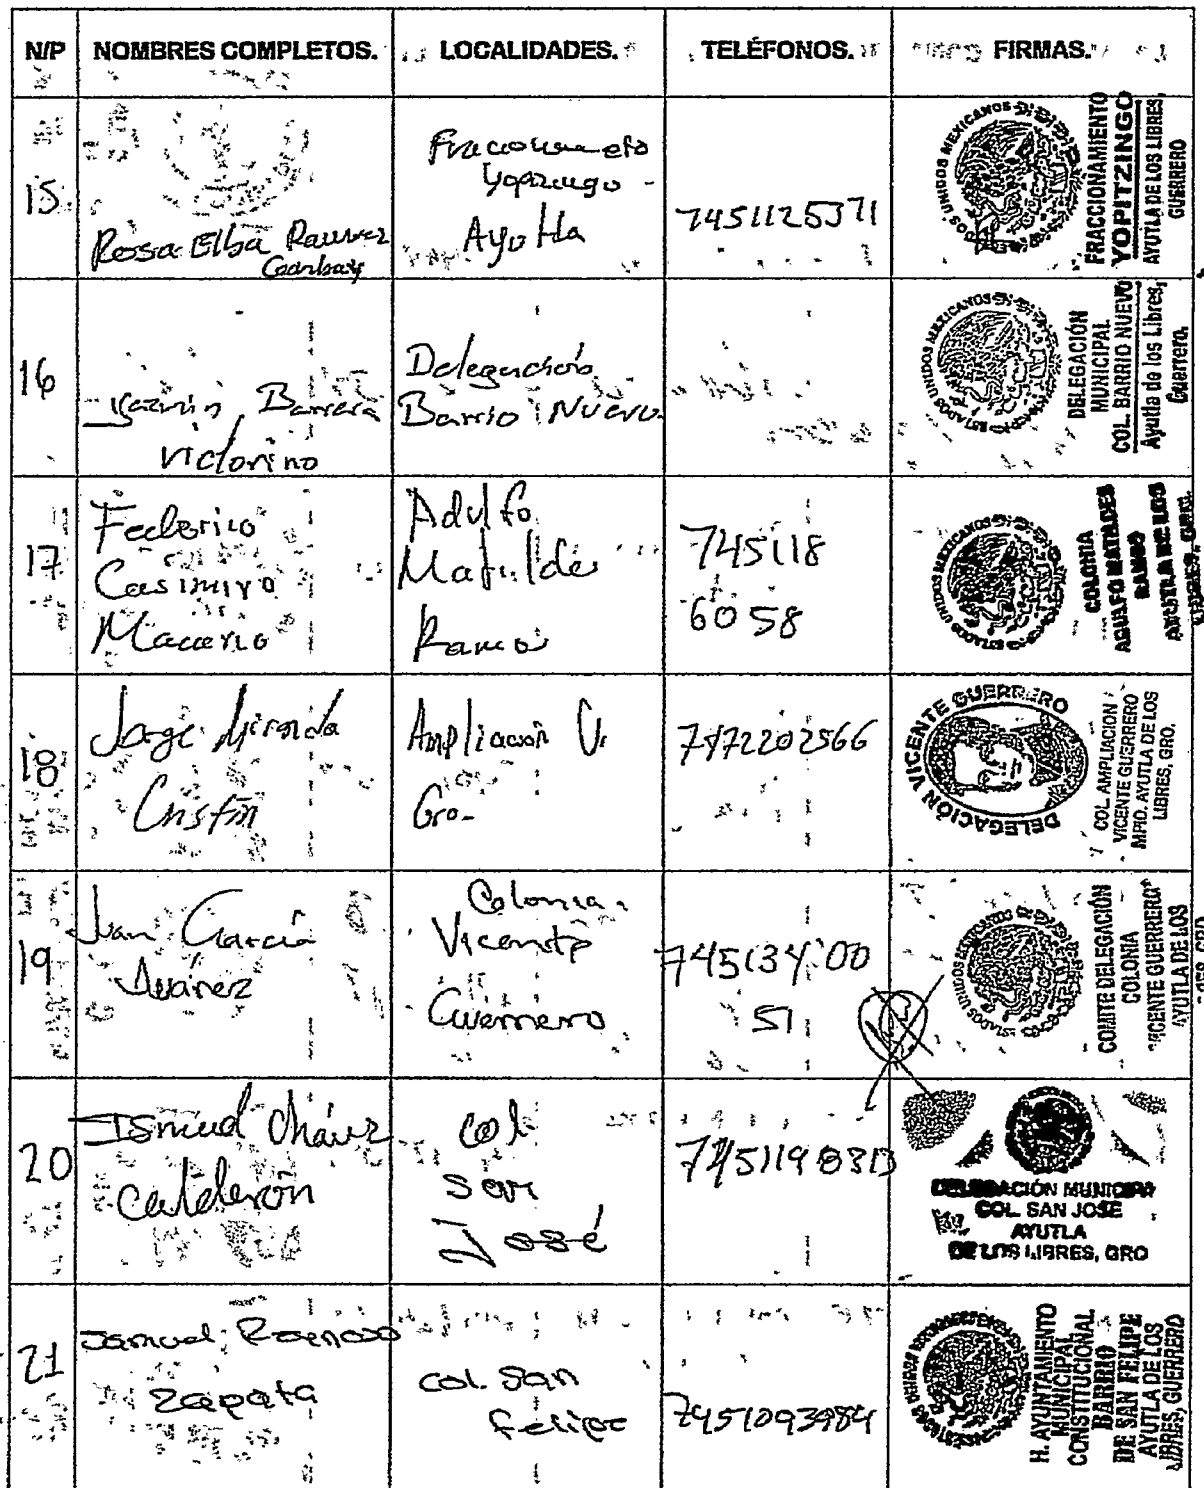 N/P NOMBRES COMPLETOS. LOCALIDADES. TELÉFONOS. FIRMAS.
15
Rosa Elba Ramirez
Garibay
Yopizingo
Ayutla
7451125371
ESTADOS UNIDOS MEXICANOS
FRACCIONAMIENTO
YOPITZINGO
AYUTLA DE LOS LIBRES,
GUERRERO
16
Yazmin Barrera
Victorino
Delegación
Barrio Nuevo
ESTADOS UNIDOS MEXICANOS
DELEGACIÓN
MUNICIPAL
COL. BARRIO NUEVO
Ayutla de los Libres,
Guerrero.
17
Federico
Casimiro
Macario
Adolfo
Matilde
Ramos
745118
6058
ESTADOS UNIDOS MEXICANOS
COLONIA
RAMOS
AYUTLA DE LOS
LIBRES, GRO.
18
Jorge Miranda
Cristin
Ampliación V.
Gro.
7472202566
DELEGACIÓN VICENTE GUERRERO
COL. AMPLIACION
VICENTE GUERRERO
MPIO. AYUTLA DE LOS
LIBRES, GRO.
19
Juan García
Álvarez
Colonia
Vicente
Guerrero
745134 00
51
ESTADOS UNIDOS MEXICANOS
COMITE DELEGACIÓN
COLONIA
"VICENTE GUERRERO"
AYUTLA DE LOS
20
Ismael Cháves
Calderón
Col
San
José
DELEGACIÓN MUNICIPAL
COL. SAN JOSE
AYUTLA
DE LOS LIBRES, GRO
21
Samuel
Zapata
Col. San
Felipe
7451093984
H. AYUNTAMIENTO
MUNICIPAL
CONSTITUCIONAL
BARRIO
DE SAN FELIPE
AYUTLA DE LOS
LIBRES, GUERRERO